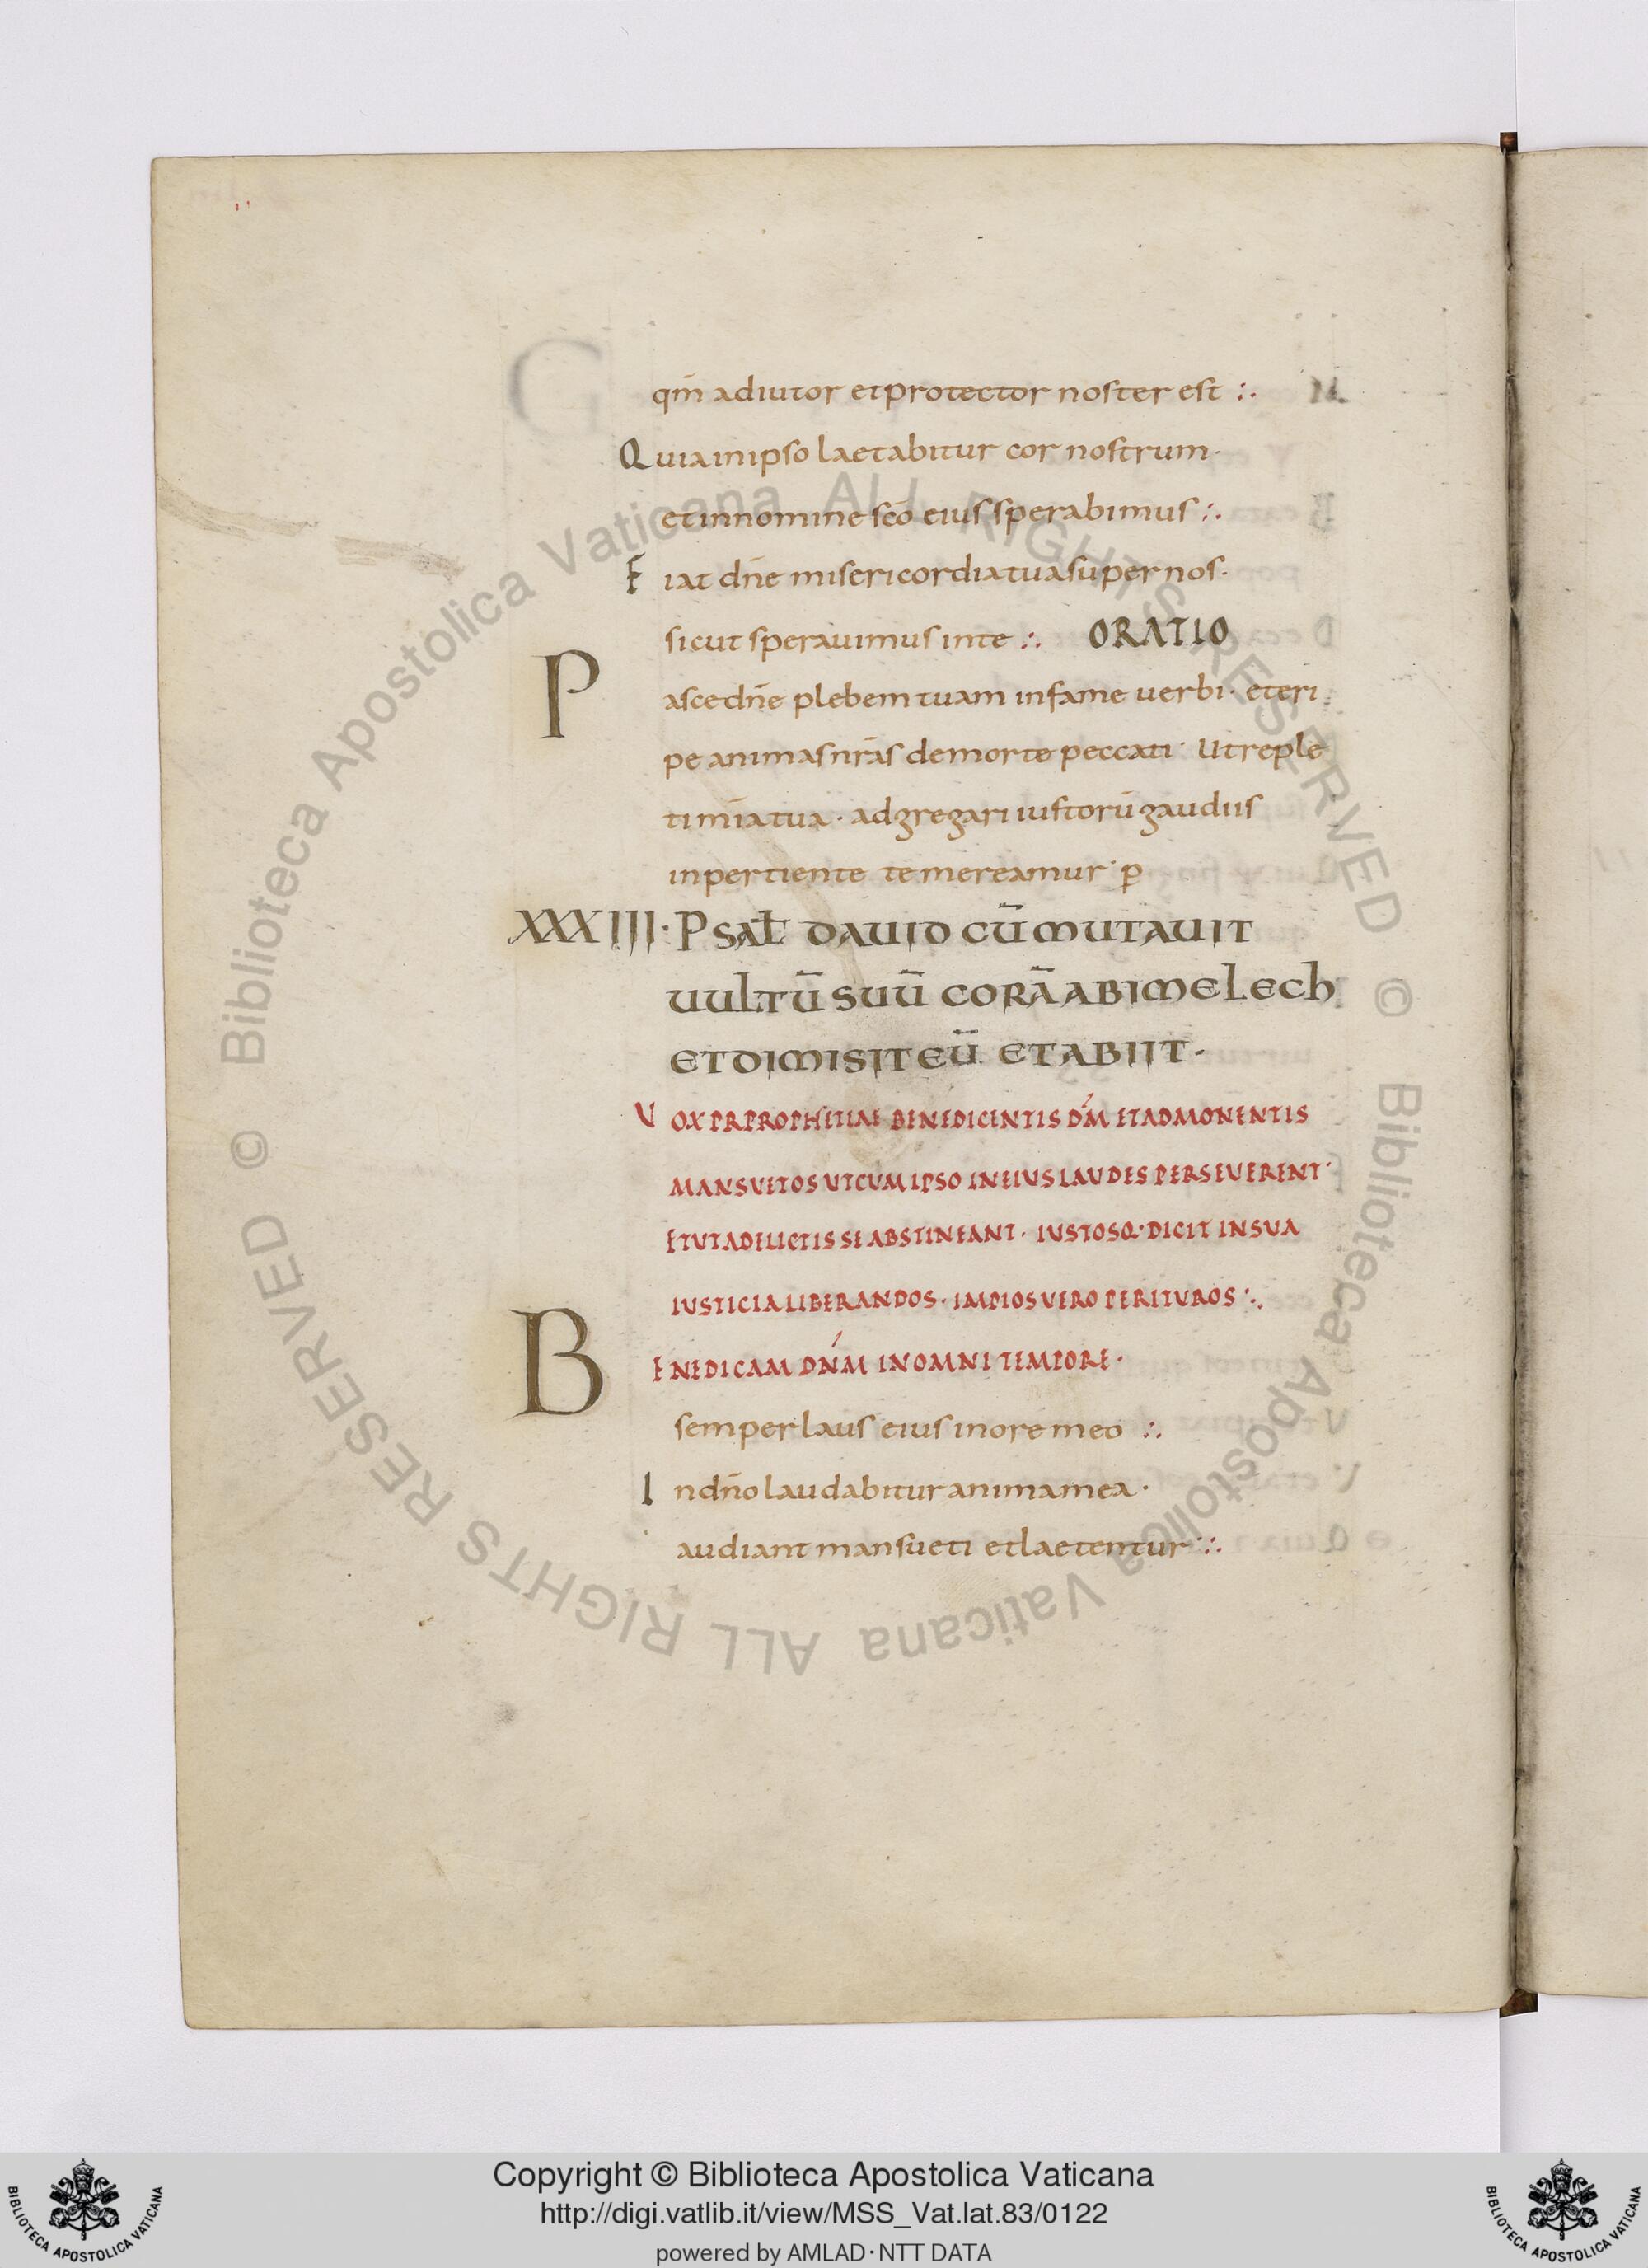 qm̄ adiutor et protector noster est :.
Quia in ipso laetabitur cor nostrum.
et in nomine sc̄o eius sperabimus :.
Fiat dn̄e misericordia tua super nos.
sicut sperauimus in te :. ORATIO
Pasce dn̄e plebem tuam in fame uerbi · et eri
pe animas nr̄as de morte peccati · Ut reple
ti mīa tua · adgregari iustorū gaudiis
inpertiente te mereamur · p
XXXIII · Psal̄ DAUID CŪ MUTAUIT
UULTŪ SUŪ CORĀ ABIMELECH
ET DIMISIT EŪ ET ABIIT ·
VOX PR PROPHETIAE BENEDICENTIS DM̄ ET ADMONENTIS
MANSUETOS UT CUM IPSO IN EIUS LAUDES PERSEUERENT ·
ET UT A DELICTIS SE ABSTINEANT · IUSTOSQ · DICIT IN SUA
IUSTICIA LIBERANDOS · IMPIOS VERO PERITUROS :.
BENEDICAM DN̄M IN OMNI TEMPORE ·
semper laus eius in ore meo :.
In dn̄o laudabitur anima mea ·
audiant mansueti et laetentur :.
© Biblioteca Apostolica Vaticana ALL RIGHTS RESERVED
© Biblioteca Apostolica Vaticana ALL RIGHTS RESERVED
Copyright © Biblioteca Apostolica Vaticana
http://digi.vatlib.it/view/MSS_Vat.lat.83/0122
powered by AMLAD · NTT DATA
BIBLIOTECA APOSTOLICA VATICANA
BIBLIOTECA APOSTOLICA VATICANA